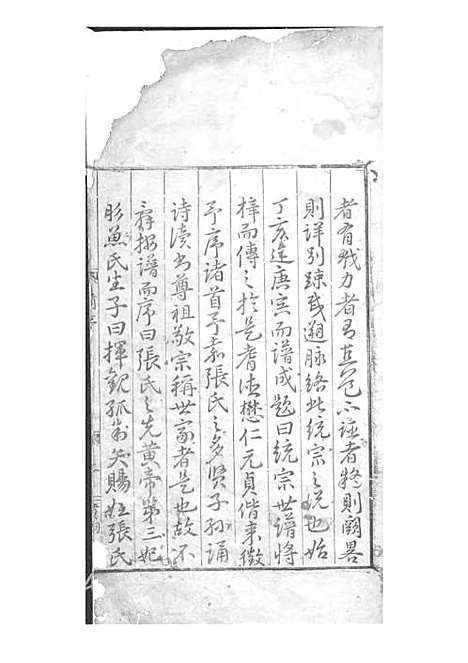 者有我力者有真已不誣者
則詳別踈或遡脉絡此統宗之説也始
丁亥迄庚寅而譜成題曰統宗世譜將
梓而傳之於是耆德懋仁元貞偕来徵
予序諸首予素張氏之多賢子孫誦
詩讀書尊祖敬宗稱世家者是也故不
辭按譜而序曰張氏之先黄帝第三妃
彤魚氏生子曰揮觀弧制矢賜姓張氏